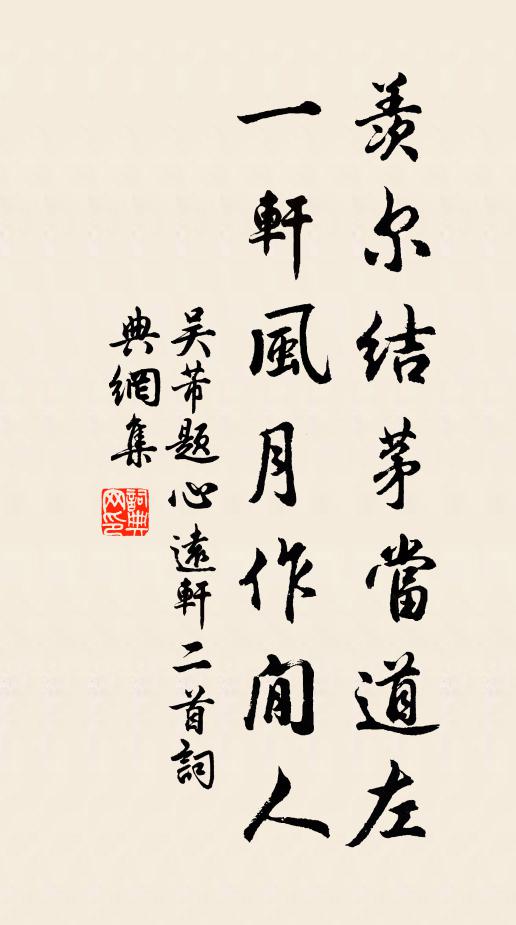 羨尔結茅當道左
一軒風月作閒人
吳芾題心遠軒二首詞
典網集
詞典网印